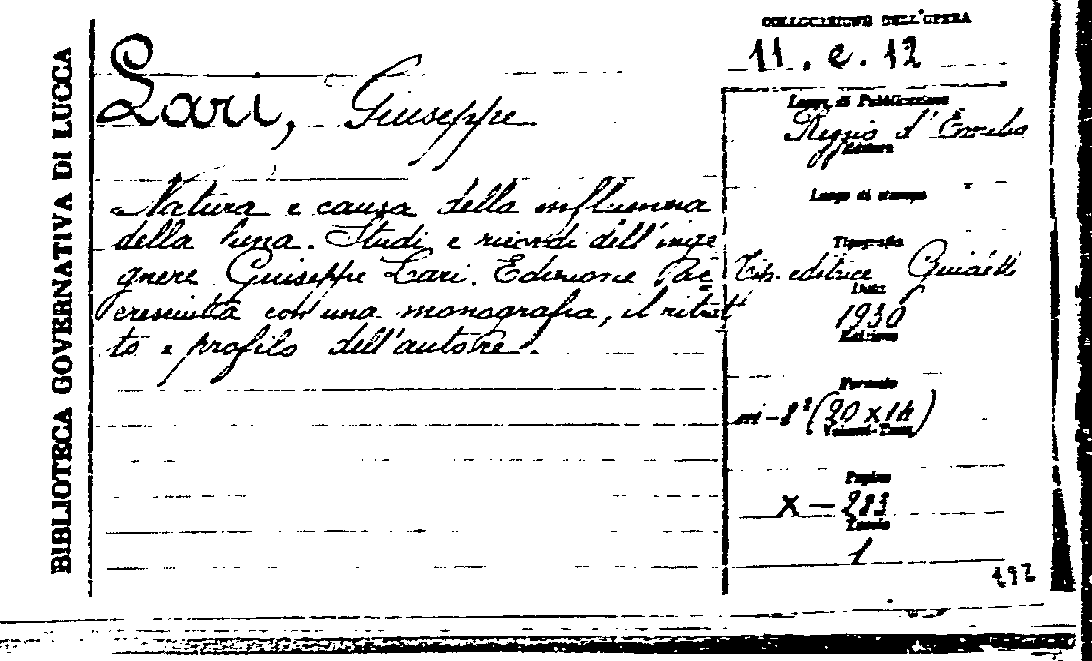 BIBLIOTECA GOVERNATIVA DI LUCCA
COLLOCAZIONE DELL'OPERA
11. e. 12
Lari, Giuseppe
Luogo di Pubblicazione
Reggio d'Emilia
Editore
Natura e causa della influenza
della luna. Studi e ricordi dell'inge
gnere Giuseppe Lari. Edizione
cresciuta con una monografia, il ritrat
to e profilo dell'autore.
Luogo di stampa
Tipografia
Tip. editrice
Data
1930
Edizione
Formato
in-8° (20 x 14)
Volumi-Tomi
Pagine
X - 283
Tavole
1